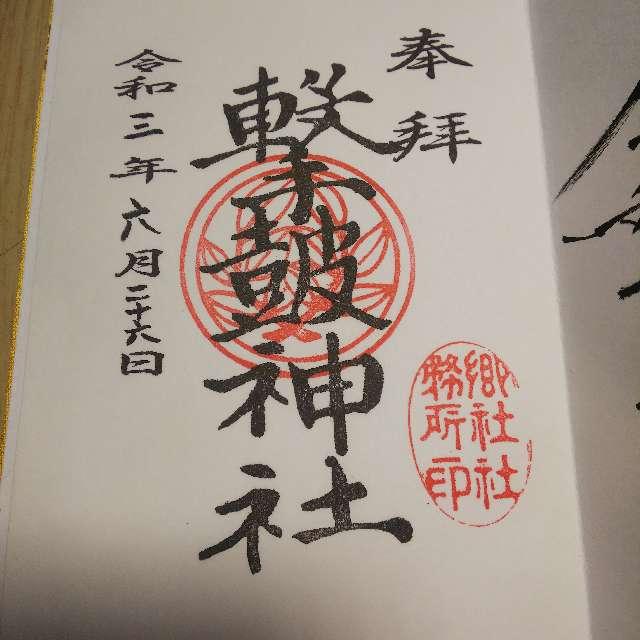 奉拝
撃皷神社
郷社社
務所印
令和三年六月二十六日